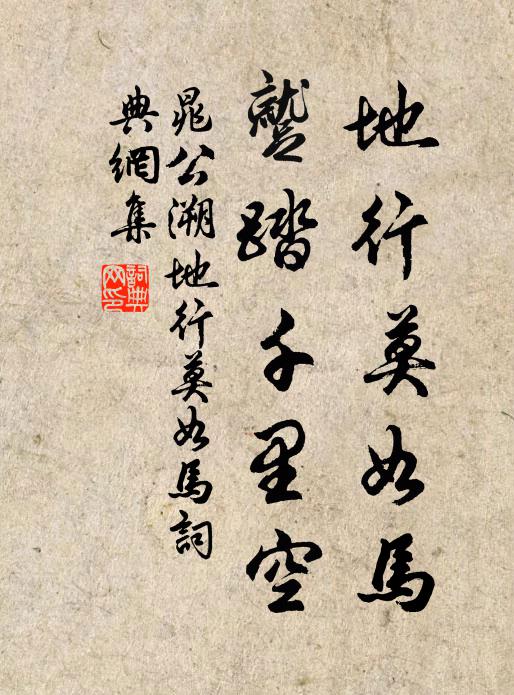 地行莫如馬
蹵踏千里空
晁公溯地行莫如馬詞
典網集
詞典
网印